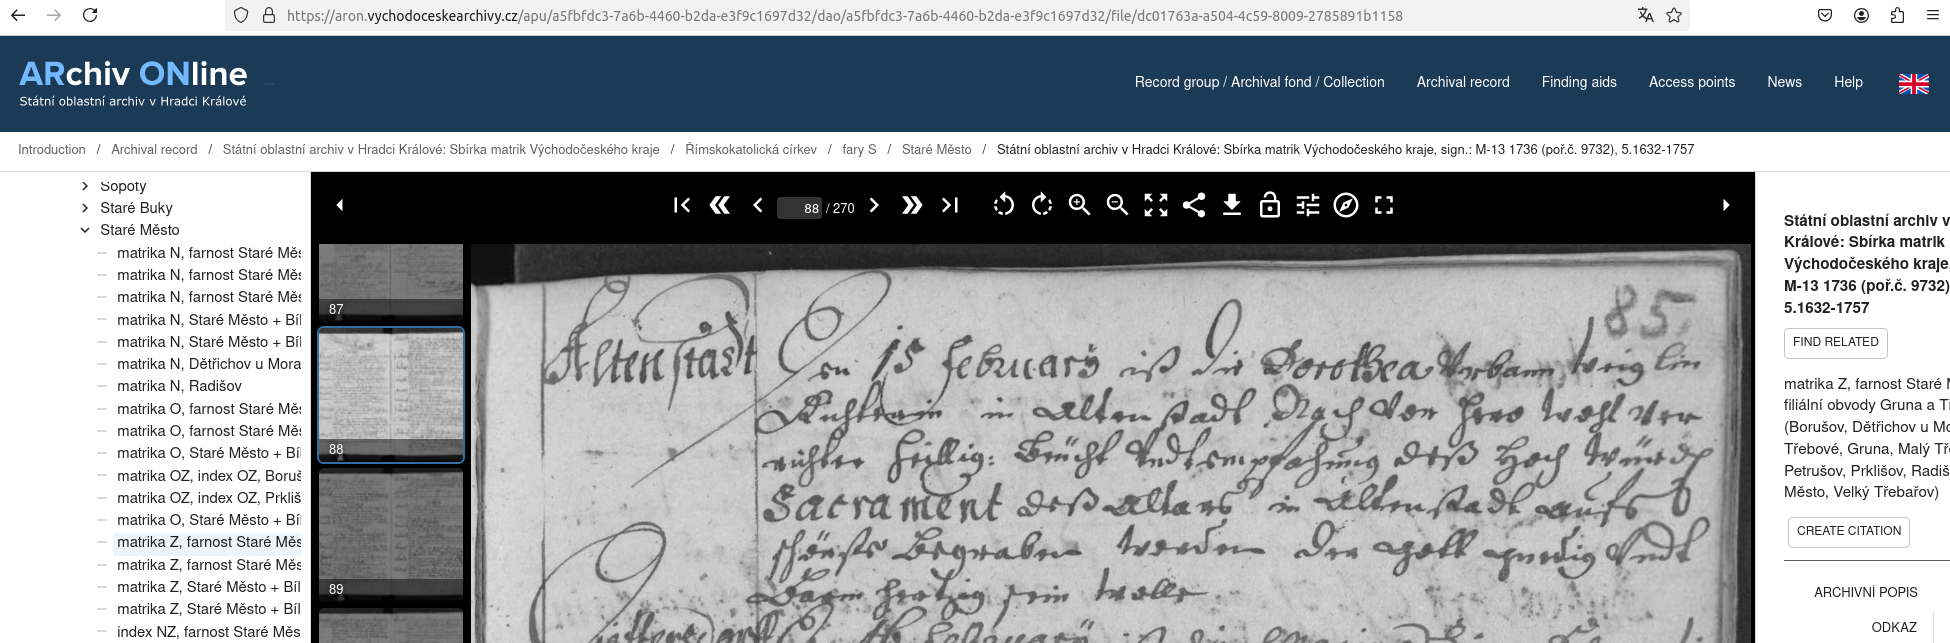 https://aron.vychodoceskearchivy.cz/apu/a5fbfdc3-7a6b-4460-b2da-e3f9c1697d32/dao/a5fbfdc3-7a6b-4460-b2da-e3f9c1697d32/file/dc01763a-a504-4c59-8009-2785891b1158
ARchiv ONline
Státní oblastní archiv v Hradci Králové
Record group / Archival fond / Collection Archival record Finding aids Access points News Help
Introduction / Archival record / Státní oblastní archiv v Hradci Králové: Sbírka matrik Východočeského kraje / Římskokatolická církev / fary S / Staré Město / Státní oblastní archiv v Hradci Králové: Sbírka matrik Východočeského kraje, sign.: M-13 1736 (poř.č. 9732), 5.1632-1757
Sopoty
Staré Buky
Staré Město
matrika N, farnost Staré Měs
matrika N, farnost Staré Měs
matrika N, farnost Staré Měs
matrika N, Staré Město + Bíl
matrika N, Staré Město + Bíl
matrika N, Dětřichov u Mora
matrika N, Radišov
matrika O, farnost Staré Měs
matrika O, farnost Staré Měs
matrika O, Staré Město + Bíl
matrika OZ, index OZ, Boruš
matrika OZ, index OZ, Prkliš
matrika O, Staré Město + Bíl
matrika Z, farnost Staré Měs
matrika Z, farnost Staré Měs
matrika Z, Staré Město + Bíl
matrika Z, Staré Město + Bíl
index NZ, farnost Staré Měs
88 / 270
87
88
89
85
Altenstadt
Den 15 February ist die Dorothea
in Altenstadt Nach
heillig: Beücht deß Hoch
Sacrament deß Altars in Altenstadt aufs
begraben worden der gott gnedig Undt
sein wolle
February ist die
Státní oblastní archiv v
Králové: Sbírka matrik
Východočeského kraje,
M-13 1736 (poř.č. 9732)
5.1632-1757
FIND RELATED
matrika Z, farnost Staré M
filiální obvody Gruna a Tř
(Borušov, Dětřichov u Mo
Třebové, Gruna, Malý Tře
Petrušov, Prklišov, Radiš
Město, Velký Třebařov)
CREATE CITATION
ARCHIVNÍ POPIS
ODKAZ